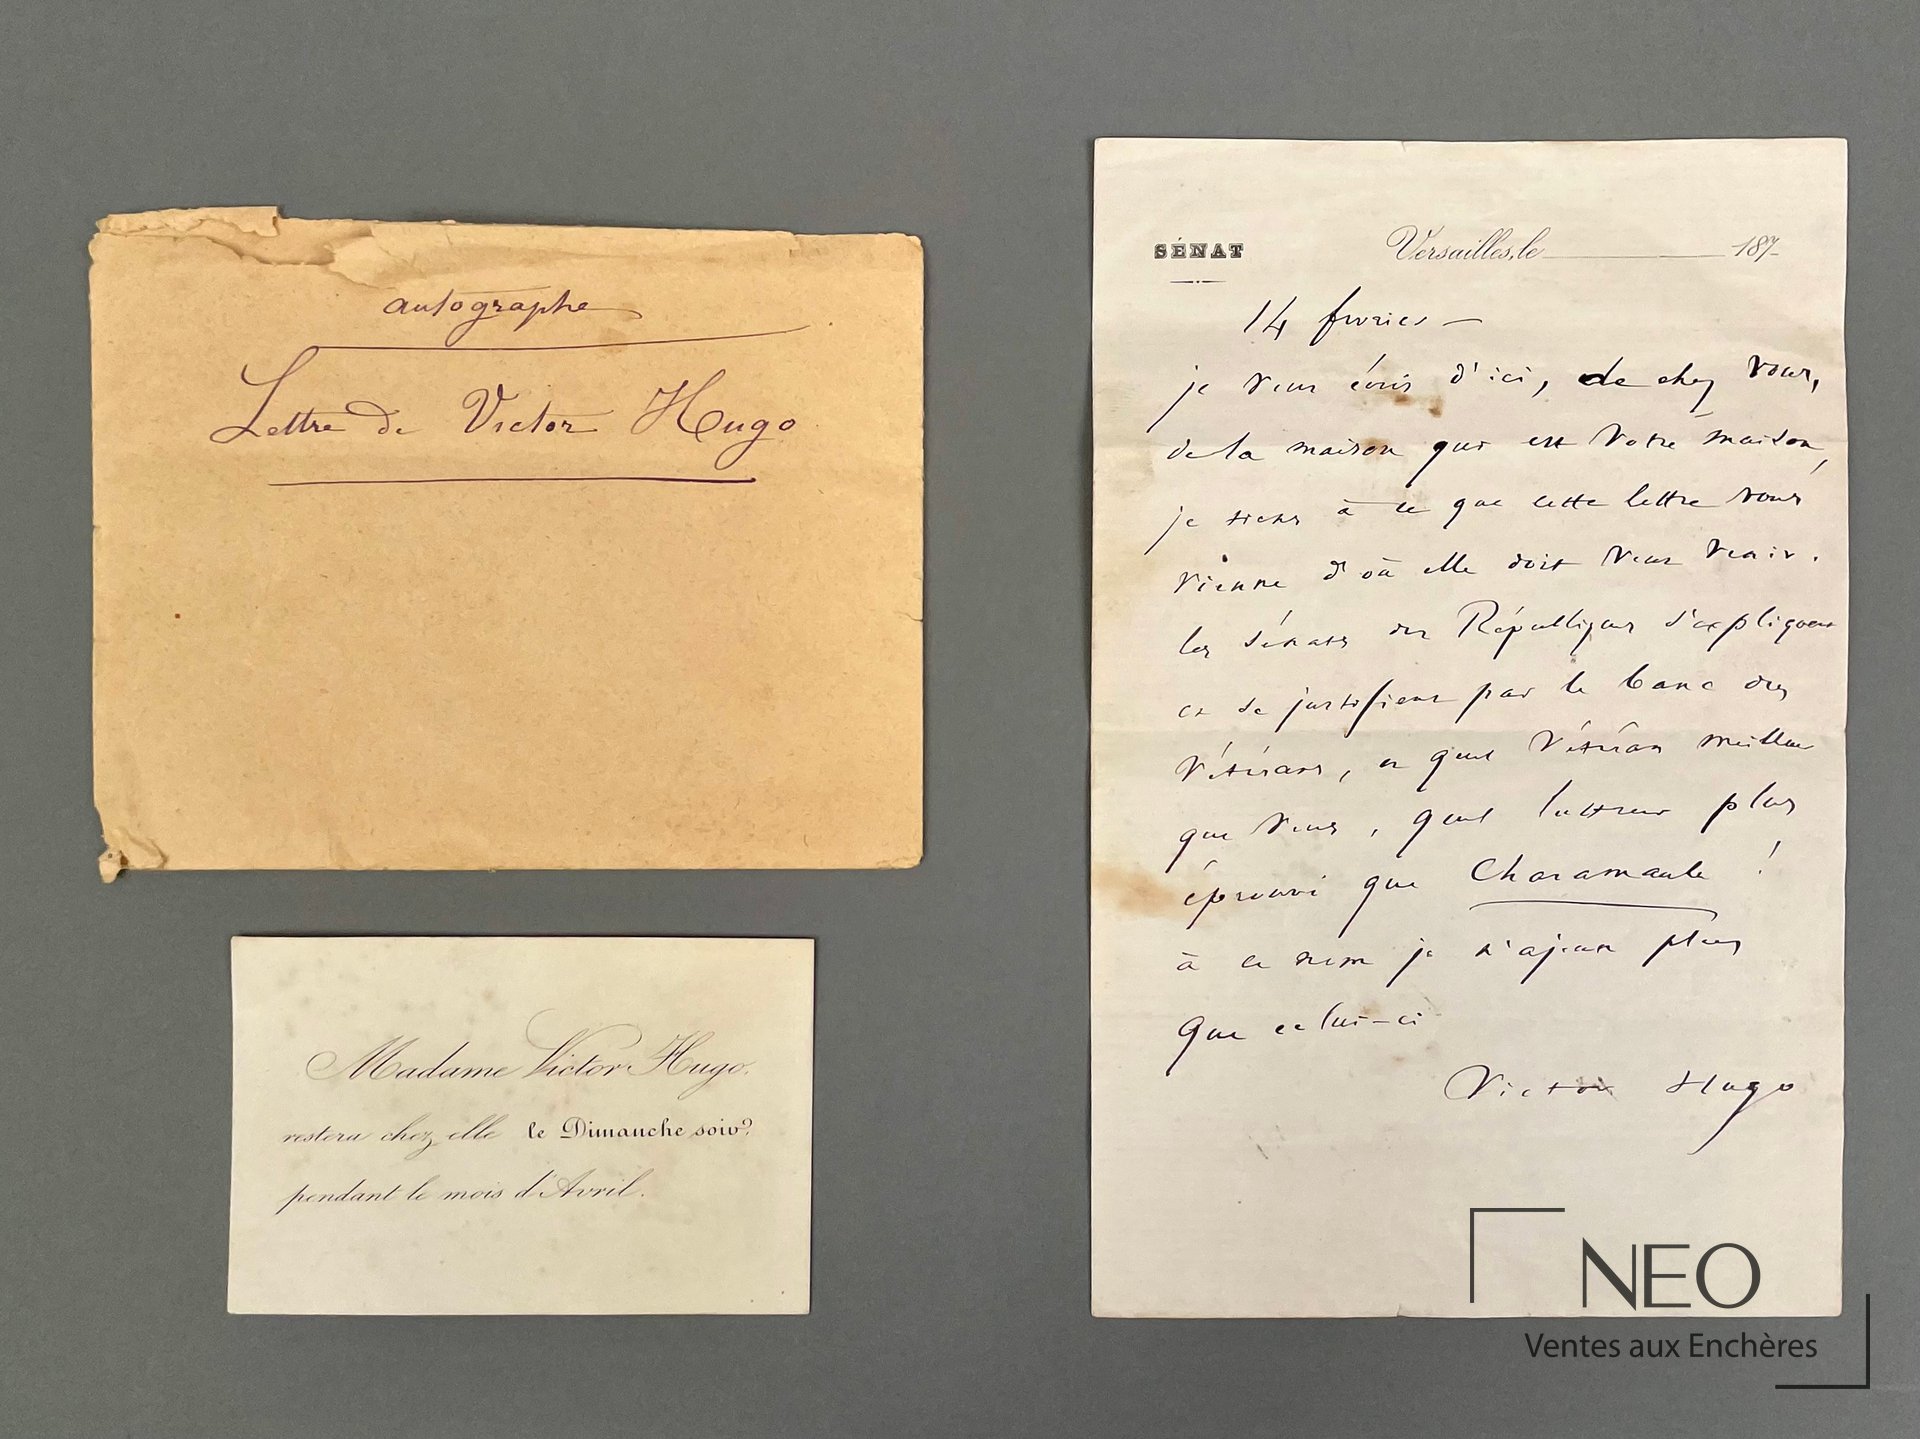 autographe
Lettre de Victor Hugo
Madame Victor Hugo.
restera chez elle le Dimanche soir
pendant le mois d'Avril.
SÉNAT
Versailles, le 187
14 février —
je vous écris d'ici, de chez vous,
de la maison qui est votre maison,
je tiens à ce que cette lettre vous
vienne d'où elle doit vous venir.
les sénats des Républiques s'expliquent
et se justifient par le banc des
vétérans, et quel vétéran meilleur
que vous, quel lutteur plus
éprouvé que Charamaule !
à ce nom je n'ajoute plus
que celui-ci
Victor Hugo
NEO
Ventes aux Enchères